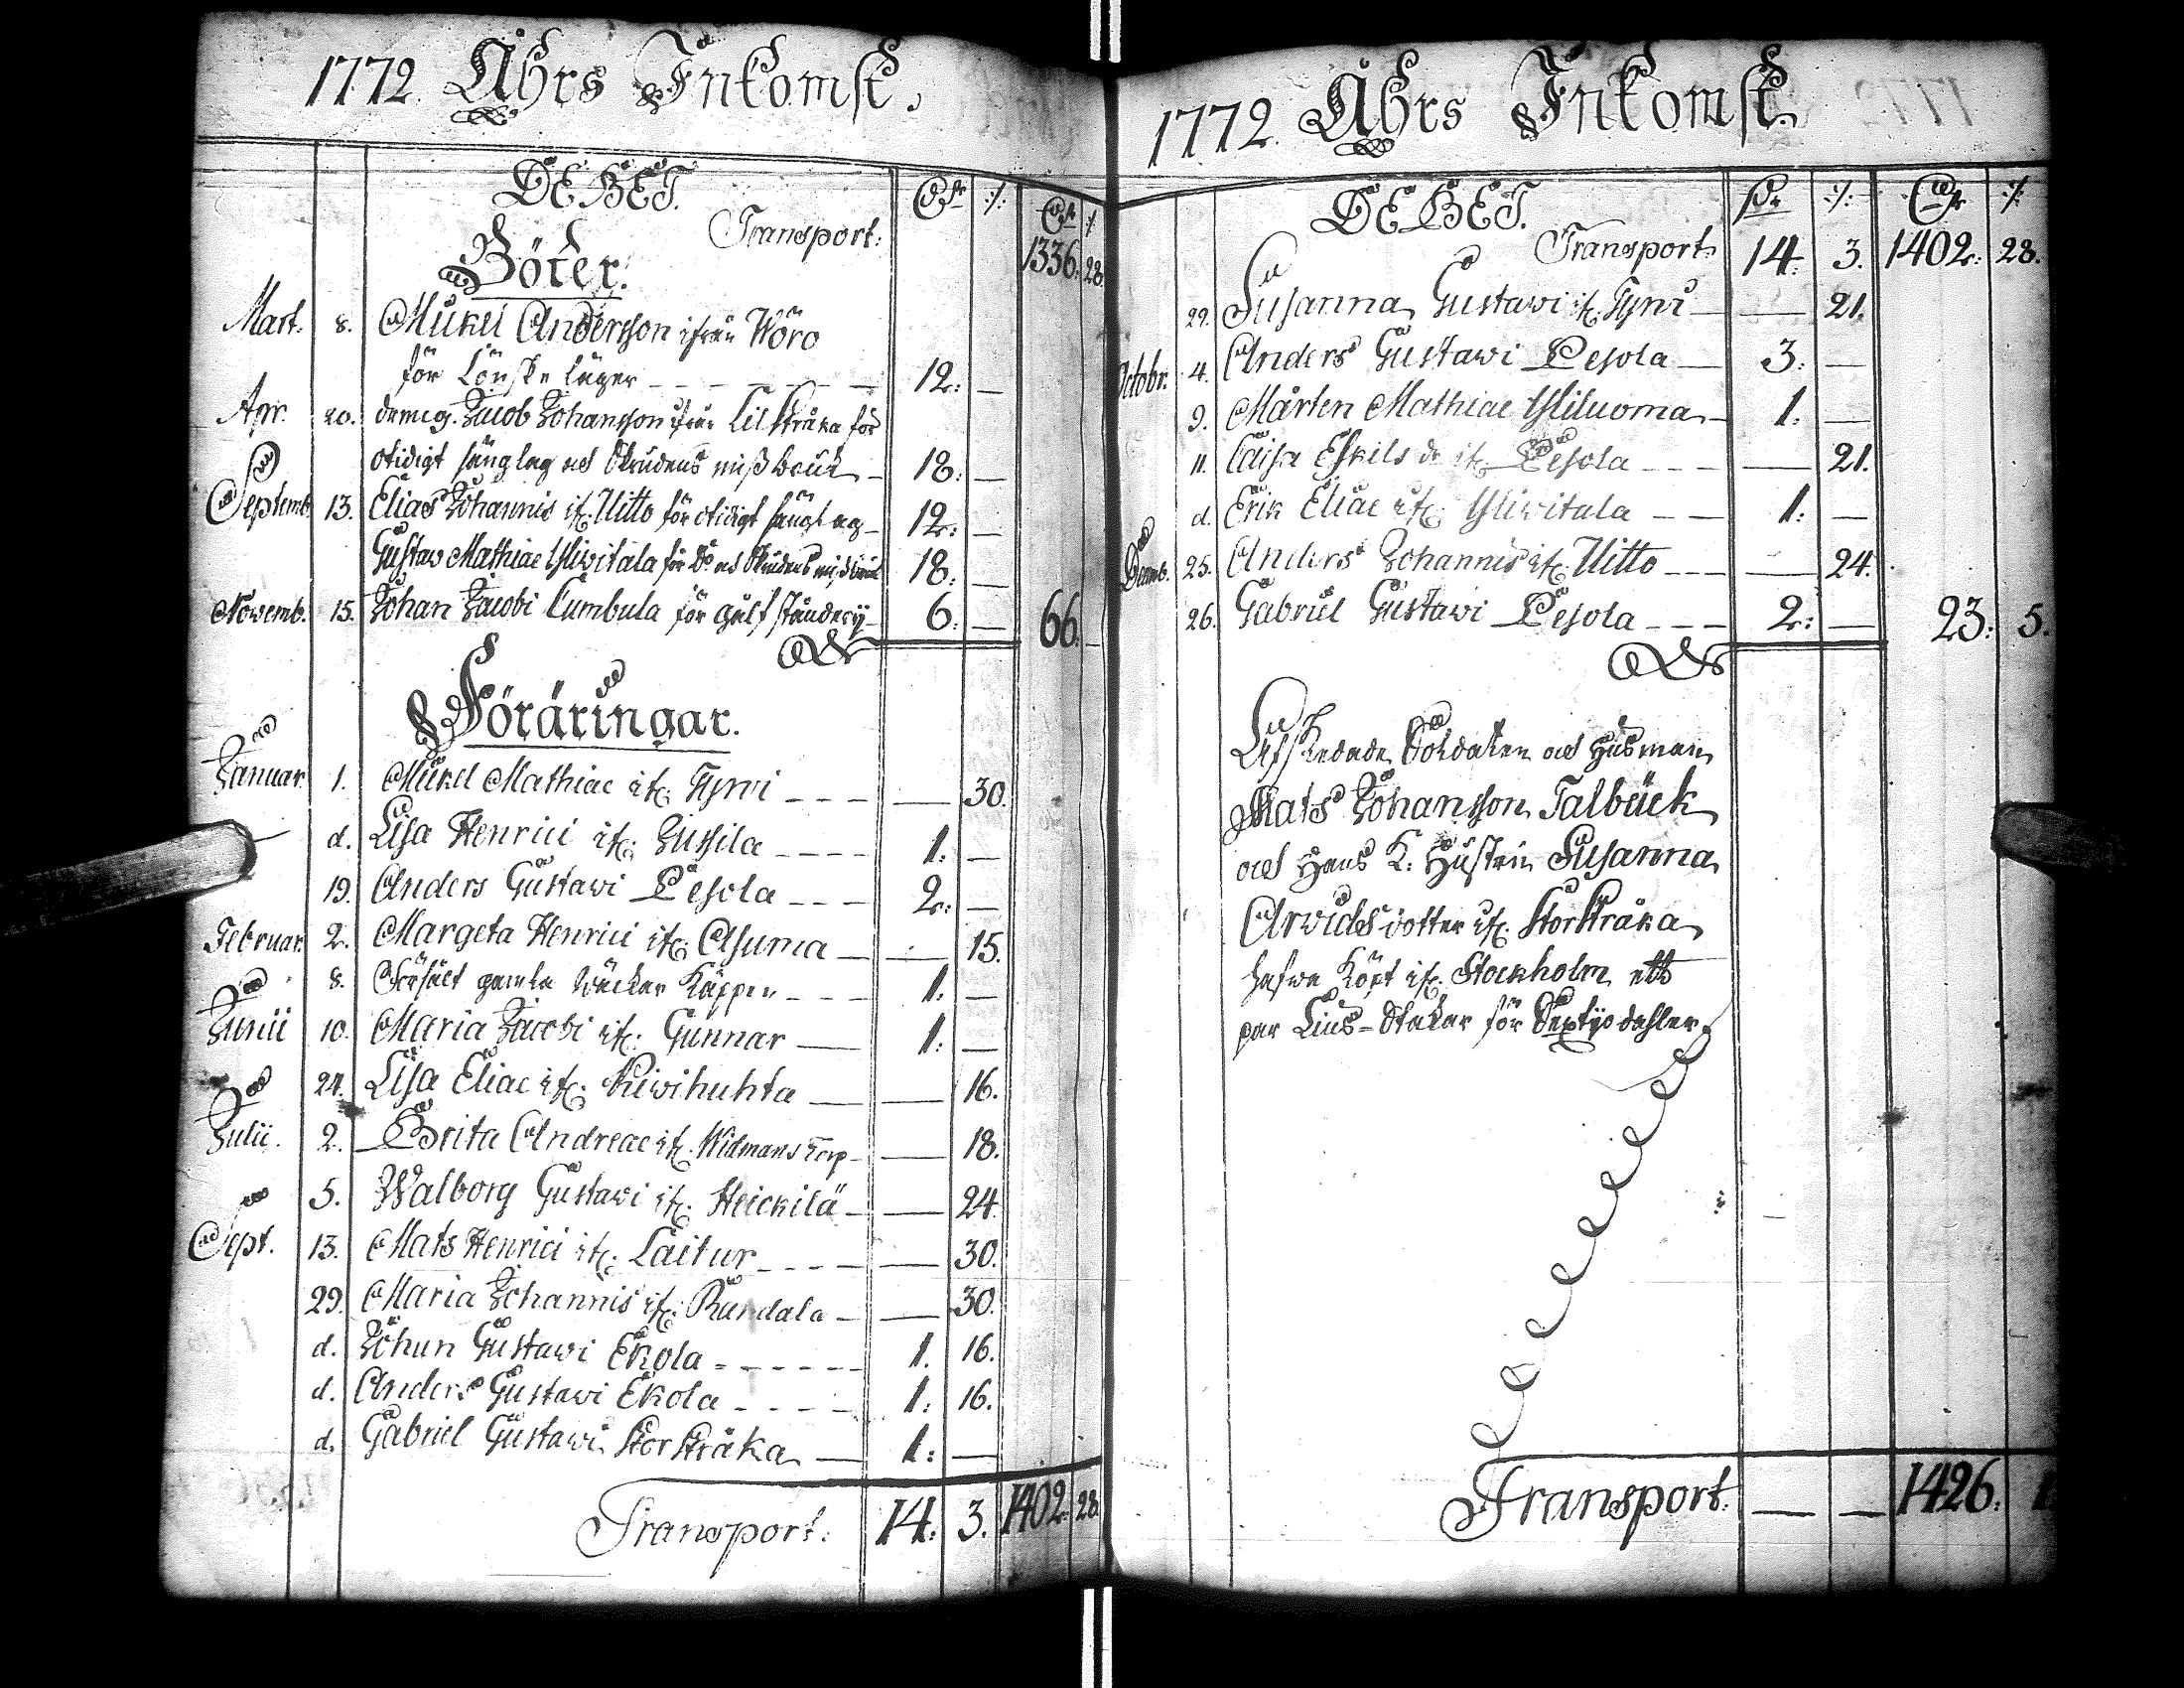 1772. Åhrs Inkomst.
DEBET.
Transport: 1336. 28.
Böter.
Mart. 8. Mickel Andersson ifrån Wörö
för Lönske läger 12: —
Apr. 20. dreng. Jacob Johansson ifrån Lilkråka för
otidigt sänglag och Skrudens missbruk 18: —
Septemb. 13. Elias Johannis if. Uitto för otidigt sänglag 12: —
Gustaw Mathiae Yliwitala för Do och Skrudens missbruk 18: —
Novemb. 15. Johan Jacobi Cumbula för gålfständery 6: — 66. —
Föräringar.
Januar. 1. Mickel Mathiae if. Tyrni — 30.
d. Lisa Henrici if. Jussila 1: —
19. Anders Gustawi Pesola 2: —
Februar. 2. Margeta Henrici if. Asuma — 15.
8. Försålt gamla Wäckar Käppen 1: —
Junii 10. Maria Jacobi if. Gunnar 1: —
24. Lisa Eliae if. Kiwihuhta — 16.
Julii. 2. Brita Andreae if. Widmans Torp — 18.
5. Walborg Gustawi if. Heickilä — 24.
Sept. 13. Mats Henrici if. Laitur — 30.
29. Maria Johannis if. Rundala — 30.
d. Johan Gustawi Ekola 1. 16.
d. Anders Gustawi Ekola 1: 16.
d. Gabriel Gustawi Storkråka 1: —
Transport: 14: 3. 1402: 28.
1772. Åhrs Inkomst.
DEBET.
Transport: 14: 3. 1402: 28.
29. Susanna Gustawi if. Tyrni — 21.
Octobr. 4. Anders Gustawi Pesola 3: —
9. Mårten Mathiae Yliluoma 1: —
11. Caisa Eskils dr if. Pesola — 21.
d. Erik Eliae if. Yliwitala 1: —
Decemb. 25. Anders Johannis if. Uitto — 24.
26. Gabriel Gustawi Pesola 2: — 23: 5.
Afskedade Soldaten och Husman
Mats Johansson Talbäck
och Hans K: Hustru Susanna
Arwidsdotter if. Storkråka
hafwa Köpt if. Stockholm ett
par Lius-Stakar för Sextijo dahler
Transport: — — 1426.